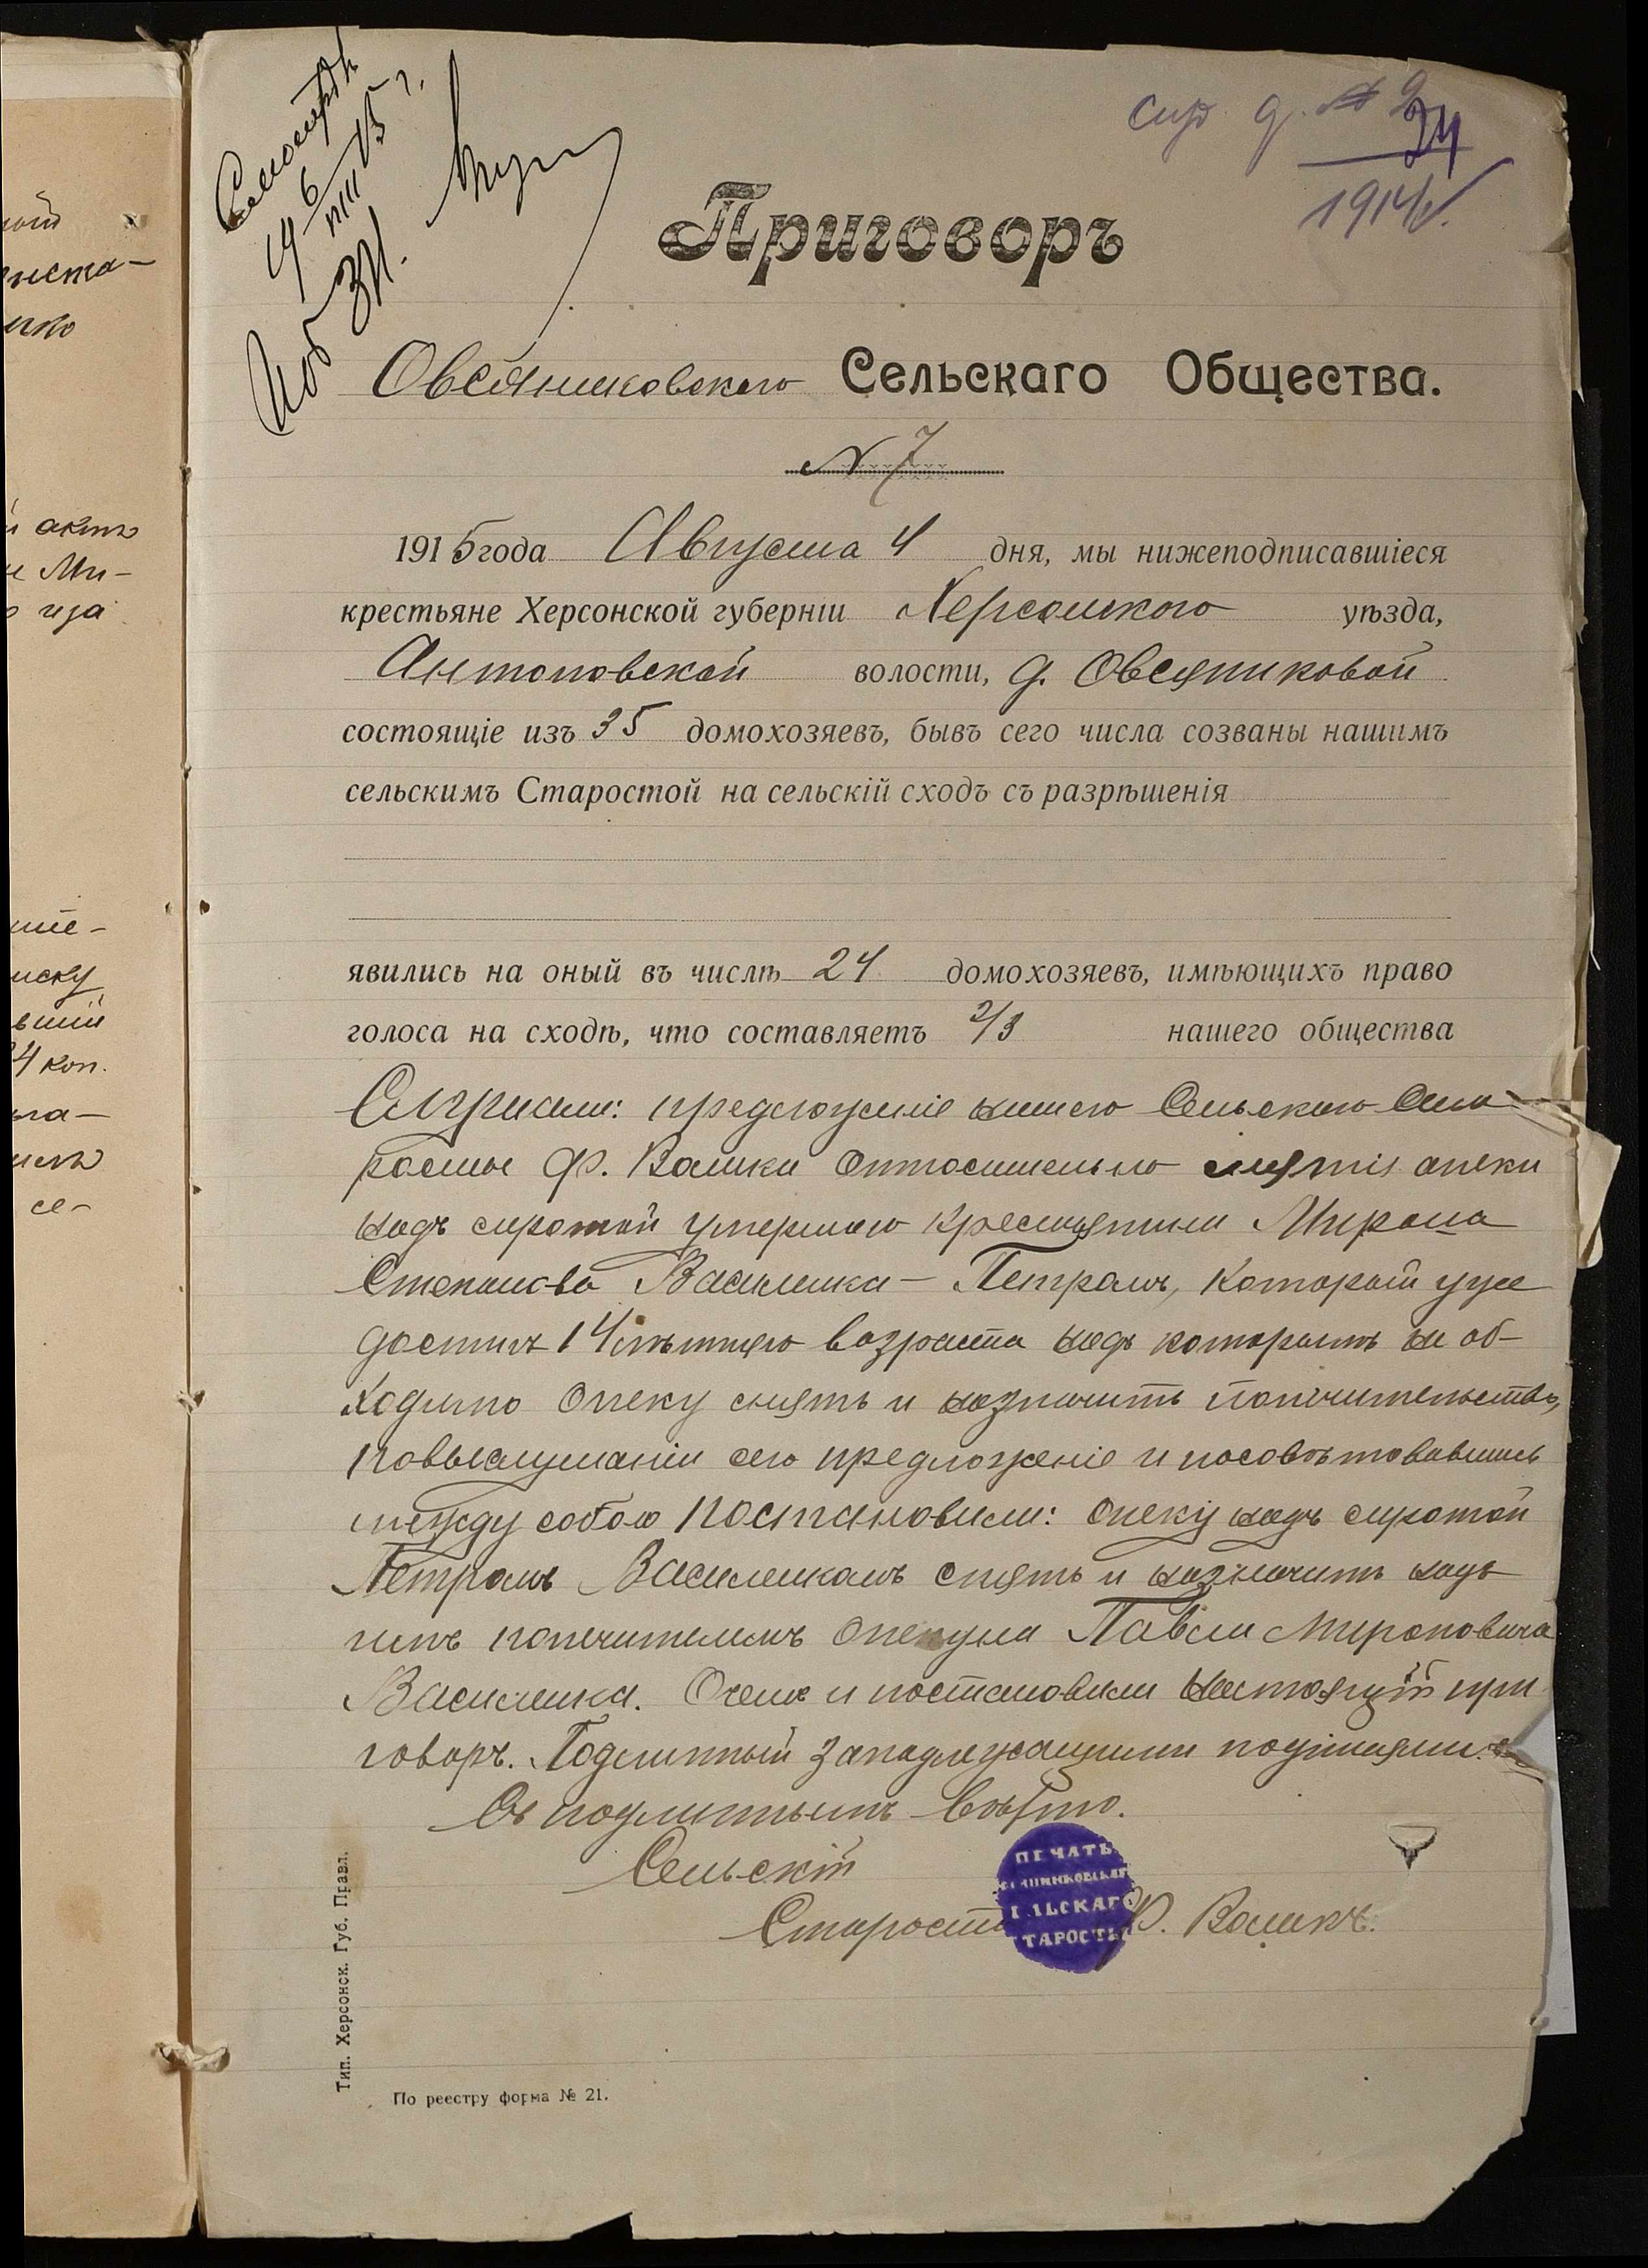 нiю
ниста-
ию
сир. д. № 2
24
1914 г.
19 6/VIII 15 г.
Приговоръ
Овсяниковскаго Сельскаго Общества.
№ 7
1915 года Августа 4 дня, мы нижеподписавшіеся
крестьяне Херсонской губерніи Херсонскаго уѣзда,
Антоновской волости, д. Овсяниковой
состоящіе изъ 35 домохозяевъ, бывъ сего числа созваны нашимъ
сельскимъ Старостой на сельскій сходъ съ разрѣшенія
явились на оный въ числѣ 24 домохозяевъ, имѣющихъ право
голоса на сходѣ, что составляетъ 2/3 нашего общества
Слушали: предложеніе нашего Сельскаго Ста
росты Ф. Валика относительно снятія опеки
надъ сиротой умершаго крестьянина Мирона
Степанова Василенка – Петромъ, который уже
достигъ 14 лѣтняго возраста надъ которымъ не об-
ходимо опеку снять и назначить попечительство,
повыслушаніи сего предложеніе и посовѣтовавшись
между собою постановили: опеку надъ сиротой
Петромъ Василенкомъ снять и назначить надъ
нимъ попечителемъ опекуна Павла Мироновича
Василенка. О чемъ и постановили настоящій при
говоръ. Подлинный за надлежащими подписями.
Съ подлиннымъ вѣрно.
Сельскій
Староста Ф. Валикъ.
ПЕЧАТЬ
СЕЛЬСКАГО
СТАРОСТЫ
Тип. Херсонск. Губ. Правл.
По реестру форма № 21.
актъ
Ми-
4 коп.
се-